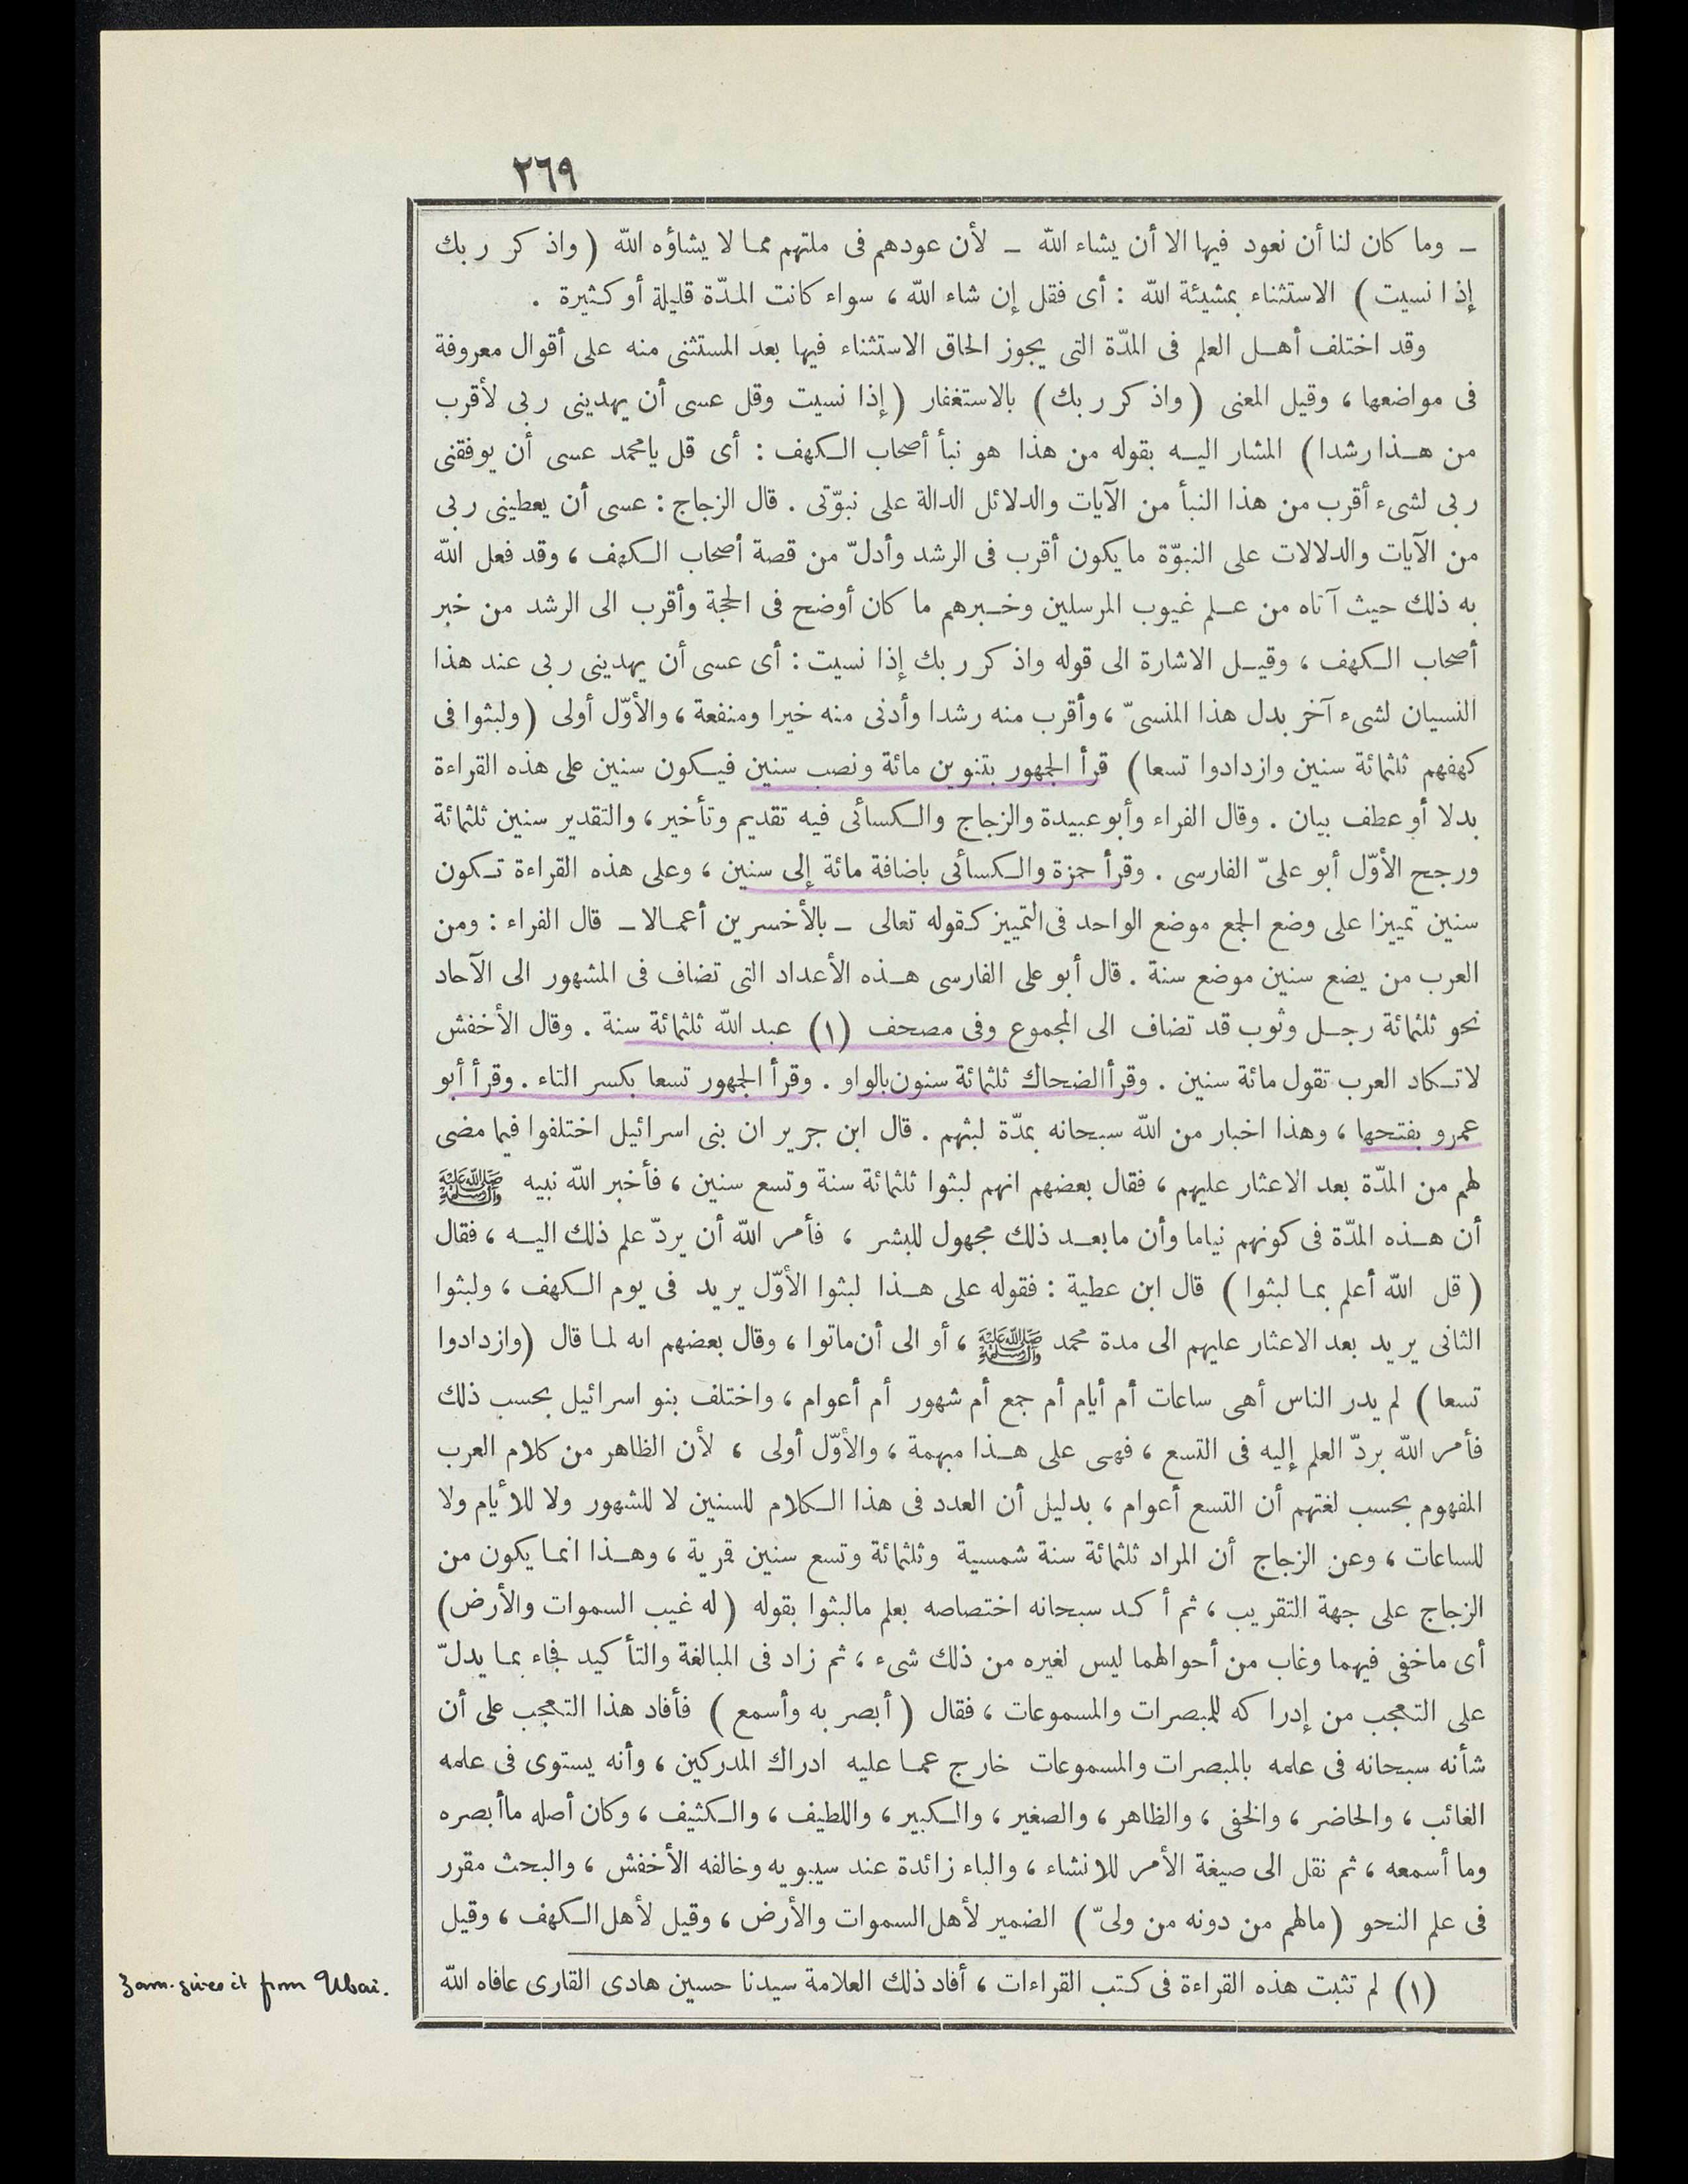 ٢٦٩
ـ وما كان لنا أن نعود فيها الا أن يشاء الله ـ لأن عودهم فى ملتهم مما لا يشاؤه الله ( واذكر ربك
إذا نسيت ) الاستثناء بمشيئة الله : أى فقل إن شاء الله ، سواء كانت المدّة قليلة أو كثيرة .
وقد اختلف أهل العلم فى المدّة التى يجوز الحاق الاستثناء فيها بعد المستثنى منه على أقوال معروفة
فى مواضعها ، وقيل المعنى ( واذكر ربك ) بالاستغفار ( إذا نسيت وقل عسى أن يهدينى ربى لأقرب
من هذا رشدا ) المشار اليه بقوله من هذا هو نبأ أصحاب الكهف : أى قل يامحمد عسى أن يوفقنى
ربى لشىء أقرب من هذا النبأ من الآيات والدلائل الدالة على نبوّتى . قال الزجاج : عسى أن يعطينى ربى
من الآيات والدلالات على النبوّة مايكون أقرب فى الرشد وأدلّ من قصة أصحاب الكهف ، وقد فعل الله
به ذلك حيث آتاه من علم غيوب المرسلين وخبرهم ما كان أوضح فى الحجة وأقرب الى الرشد من خبر
أصحاب الكهف ، وقيل الاشارة الى قوله واذكر ربك إذا نسيت : أى عسى أن يهدينى ربى عند هذا
النسيان لشىء آخر بدل هذا المنسىّ ، وأقرب منه رشدا وأدنى منه خيرا ومنفعة ، والأوّل أولى ( ولبثوا فى
كهفهم ثلثمائة سنين وازدادوا تسعا ) قرأ الجمهور بتنوين مائة ونصب سنين فيكون سنين على هذه القراءة
بدلا أو عطف بيان . وقال الفراء وأبو عبيدة والزجاج والكسائى فيه تقديم وتأخير ، والتقدير سنين ثلثمائة
ورجح الأوّل أبو علىّ الفارسى . وقرأ حمزة والكسائى باضافة مائة إلى سنين ، وعلى هذه القراءة تكون
سنين تمييزا على وضع الجمع موضع الواحد فى التمييز كقوله تعالى ـ بالأخسرين أعمالا ـ قال الفراء : ومن
العرب من يضع سنين موضع سنة . قال أبو على الفارسى هذه الأعداد التى تضاف فى المشهور الى الآحاد
نحو ثلثمائة رجل وثوب قد تضاف الى المجموع وفى مصحف (١) عبد الله ثلثمائة سنة . وقال الأخفش
لاتكاد العرب تقول مائة سنين . وقرأ الضحاك ثلثمائة سنون بالواو . وقرأ الجمهور تسعا بكسر التاء . وقرأ أبو
عمرو بفتحها ، وهذا اخبار من الله سبحانه بمدّة لبثهم . قال ابن جرير ان بنى اسرائيل اختلفوا فيما مضى
لهم من المدّة بعد الاعثار عليهم ، فقال بعضهم انهم لبثوا ثلثمائة سنة وتسع سنين ، فأخبر الله نبيه ﷺ
أن هذه المدّة فى كونهم نياما وأن مابعد ذلك مجهول للبشر ، فأمر الله أن يردّ علم ذلك اليه ، فقال
( قل الله أعلم بما لبثوا ) قال ابن عطية : فقوله على هذا لبثوا الأوّل يريد فى يوم الكهف ، ولبثوا
الثانى يريد بعد الاعثار عليهم الى مدة محمد ﷺ ، أو الى أن ماتوا ، وقال بعضهم انه لما قال ( وازدادوا
تسعا ) لم يدر الناس أهى ساعات أم أيام أم جمع أم شهور أم أعوام ، واختلف بنو اسرائيل بحسب ذلك
فأمر الله بردّ العلم إليه فى التسع ، فهى على هذا مبهمة ، والأوّل أولى ، لأن الظاهر من كلام العرب
المفهوم بحسب لغتهم أن التسع أعوام ، بدليل أن العدد فى هذا الكلام للسنين لا للشهور ولا للأيام ولا
للساعات ، وعن الزجاج أن المراد ثلثمائة سنة شمسية وثلثمائة وتسع سنين قمرية ، وهذا انما يكون من
الزجاج على جهة التقريب ، ثم أكد سبحانه اختصاصه بعلم مالبثوا بقوله ( له غيب السموات والأرض )
أى ماخفى فيهما وغاب من أحوالهما ليس لغيره من ذلك شىء ، ثم زاد فى المبالغة والتأكيد فجاء بما يدلّ
على التعجب من إدراكه للمبصرات والمسموعات ، فقال ( أبصر به وأسمع ) فأفاد هذا التعجب على أن
شأنه سبحانه فى علمه بالمبصرات والمسموعات خارج عما عليه ادراك المدركين ، وأنه يستوى فى علمه
الغائب ، والحاضر ، والخفى ، والظاهر ، والصغير ، والكبير ، واللطيف ، والكثيف ، وكان أصله ماأبصره
وما أسمعه ، ثم نقل الى صيغة الأمر للانشاء ، والباء زائدة عند سيبويه وخالفه الأخفش ، والبحث مقرر
فى علم النحو ( مالهم من دونه من ولىّ ) الضمير لأهل السموات والأرض ، وقيل لأهل الكهف ، وقيل
(١) لم تثبت هذه القراءة فى كتب القراءات ، أفاد ذلك العلامة سيدنا حسين هادى القارى عافاه الله
Zam. gives it from Ubai.